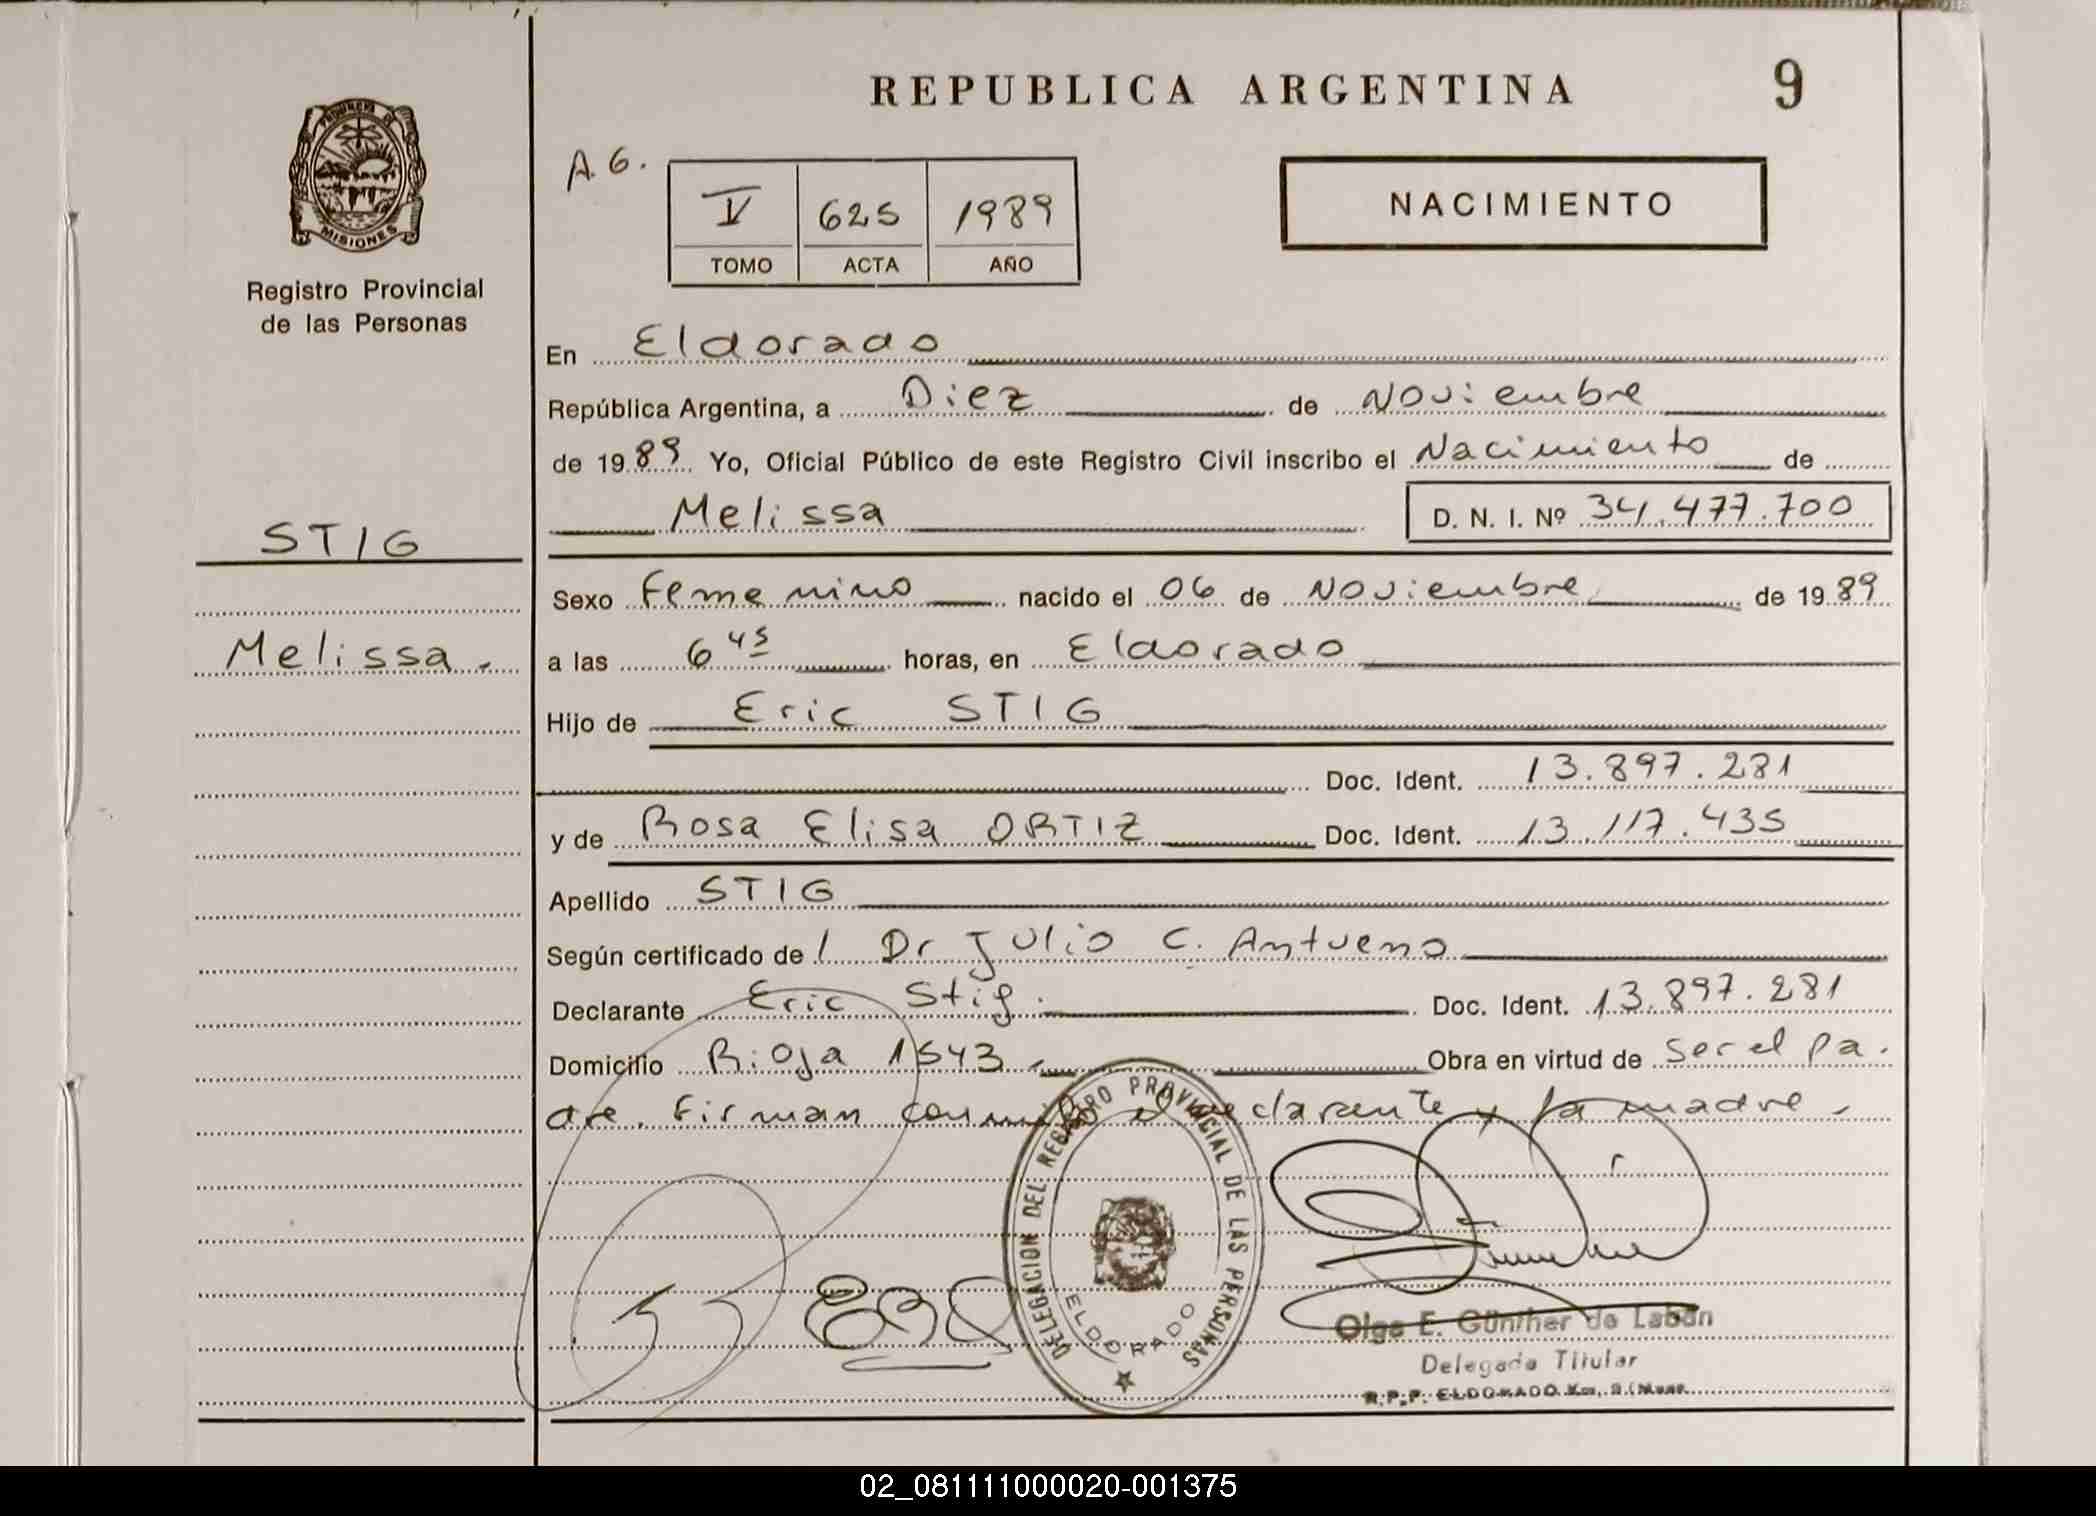 REPUBLICA ARGENTINA 9
PROVINCIA DE
MISIONES
Registro Provincial
de las Personas
A. G.
V 625 1989
TOMO ACTA AÑO
NACIMIENTO
En Eldorado
República Argentina, a Diez de Noviembre
de 1989 Yo, Oficial Público de este Registro Civil inscribo el Nacimiento de
Melissa D. N. I. Nº 34.477.700
STIG
Melissa.
Sexo Femenino nacido el 06 de Noviembre de 1989
a las 6 45 horas, en Eldorado
Hijo de Eric STIG
Doc. Ident. 13.897.281
y de Rosa Elisa ORTIZ Doc. Ident. 13.117.435
Apellido STIG
Según certificado de l Dr Julio C. Antueno
Declarante Eric Stig. Doc. Ident. 13.897.281
Domicilio Rioja 1543 Obra en virtud de ser el pa.
dre. Firman conmigo el declarante y la madre
DELEGACION DEL REGISTRO PROVINCIAL DE LAS PERSONAS
ELDORADO
Olga E. Günther de Labán
Delegada Titular
R.P.P. ELDORADO Km. 9 (Mnes.
02_081111000020-001375